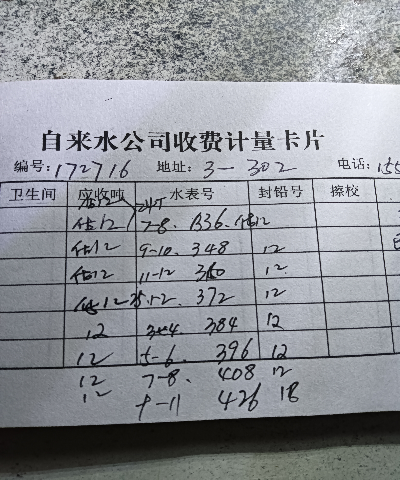 自来水公司收费计量卡片
编号:172716 地址: 3-302 电话: 155
卫生间 应收吨 水表号 封铅号 擦校
估12 7-8. 336. 估12
估12 9-10. 348 12
估12 11-12 360 12
估12 25.1-2. 372 12
12 3-4 384 12
12 5-6. 396 12
12 7-8. 408 12
12 9-11 426 18